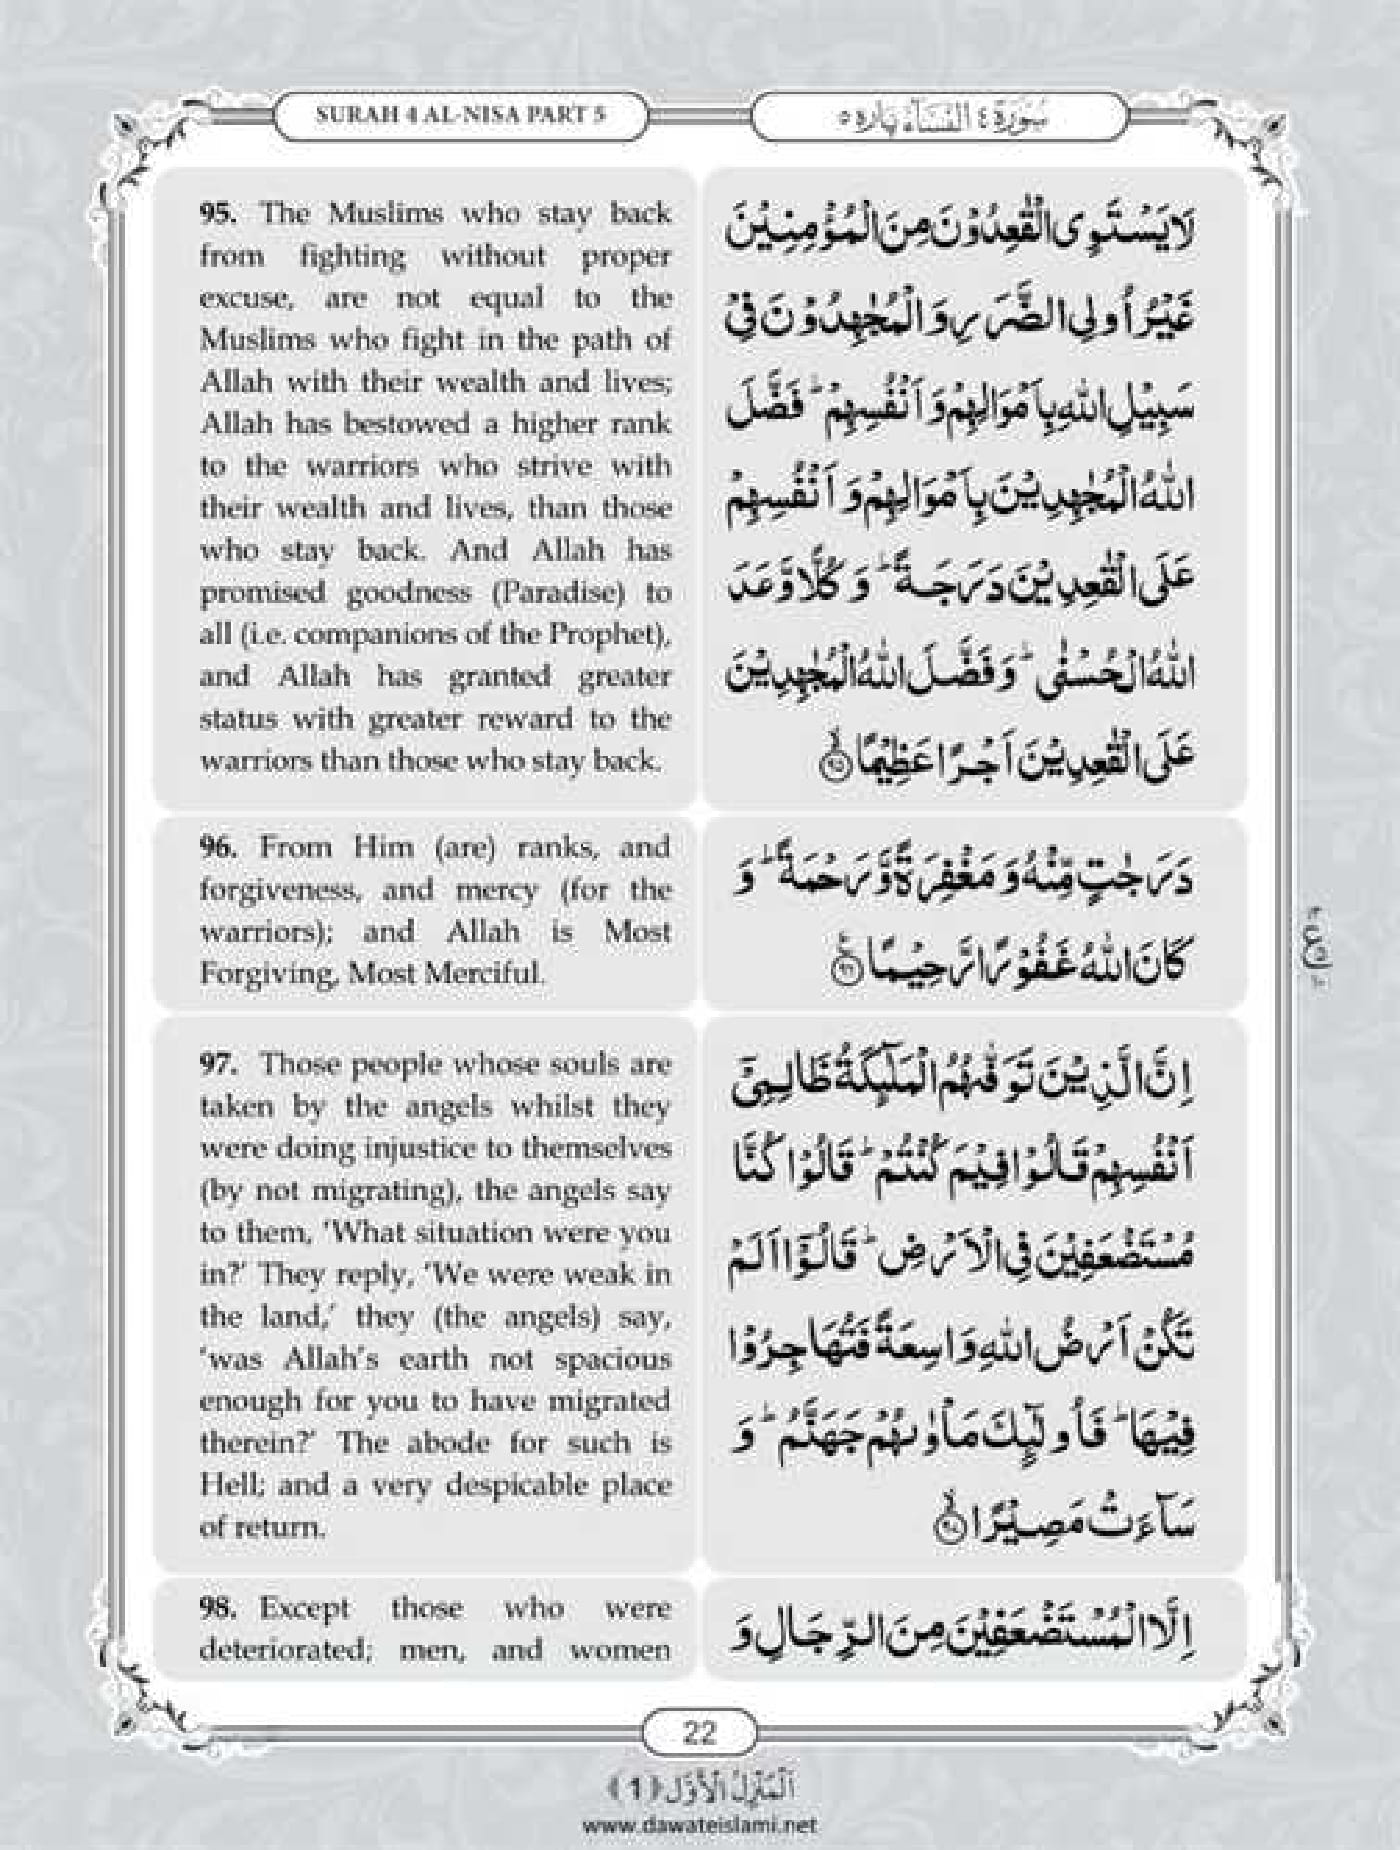 SURAH 4 AL-NISA PART 5
سُوْرَة ٤ اَلنِّسَآء پارہ ٥
95. The Muslims who stay back
from fighting without proper
excuse, are not equal to the
Muslims who fight in the path of
Allah with their wealth and lives;
Allah has bestowed a higher rank
to the warriors who strive with
their wealth and lives, than those
who stay back. And Allah has
promised goodness (Paradise) to
all (i.e. companions of the Prophet),
and Allah has granted greater
status with greater reward to the
warriors than those who stay back.
لَا یَسْتَوِی الْقٰعِدُوْنَ مِنَ الْمُؤْمِنِیْنَ
غَیْرُ اُولِی الضَّرَرِ وَ الْمُجٰهِدُوْنَ فِیْ
سَبِیْلِ اللّٰهِ بِاَمْوَالِهِمْ وَ اَنْفُسِهِمْؕ فَضَّلَ
اللّٰهُ الْمُجٰهِدِیْنَ بِاَمْوَالِهِمْ وَ اَنْفُسِهِمْ
عَلَى الْقٰعِدِیْنَ دَرَجَةًؕ وَ كُلًّا وَّعَدَ
اللّٰهُ الْحُسْنٰىؕ وَ فَضَّلَ اللّٰهُ الْمُجٰهِدِیْنَ
عَلَى الْقٰعِدِیْنَ اَجْرًا عَظِیْمًاۙ ﴿۹۵﴾
96. From Him (are) ranks, and
forgiveness, and mercy (for the
warriors); and Allah is Most
Forgiving, Most Merciful.
دَرَجٰتٍ مِّنْهُ وَ مَغْفِرَةً وَّ رَحْمَةًؕ وَ
كَانَ اللّٰهُ غَفُوْرًا رَّحِیْمًا ﴿۹۶﴾
97. Those people whose souls are
taken by the angels whilst they
were doing injustice to themselves
(by not migrating), the angels say
to them, ‘What situation were you
in?’ They reply, ‘We were weak in
the land,’ they (the angels) say,
‘was Allah’s earth not spacious
enough for you to have migrated
therein?’ The abode for such is
Hell; and a very despicable place
of return.
اِنَّ الَّذِیْنَ تَوَفّٰىهُمُ الْمَلٰٓىٕكَةُ ظَالِمِیْۤ
اَنْفُسِهِمْ قَالُوْا فِیْمَ كُنْتُمْؕ قَالُوْا كُنَّا
مُسْتَضْعَفِیْنَ فِی الْاَرْضِؕ قَالُوْۤا اَلَمْ
تَكُنْ اَرْضُ اللّٰهِ وَاسِعَةً فَتُهَاجِرُوْا
فِیْهَاؕ فَاُولٰٓىٕكَ مَاْوٰىهُمْ جَهَنَّمُؕ وَ
سَآءَتْ مَصِیْرًاۙ ﴿۹۷﴾
98. Except those who were
deteriorated; men, and women
اِلَّا الْمُسْتَضْعَفِیْنَ مِنَ الرِّجَالِ وَ
22
اَلْمَنْزِلُ الْاَوَّل ﴿1﴾
www.dawateislami.net